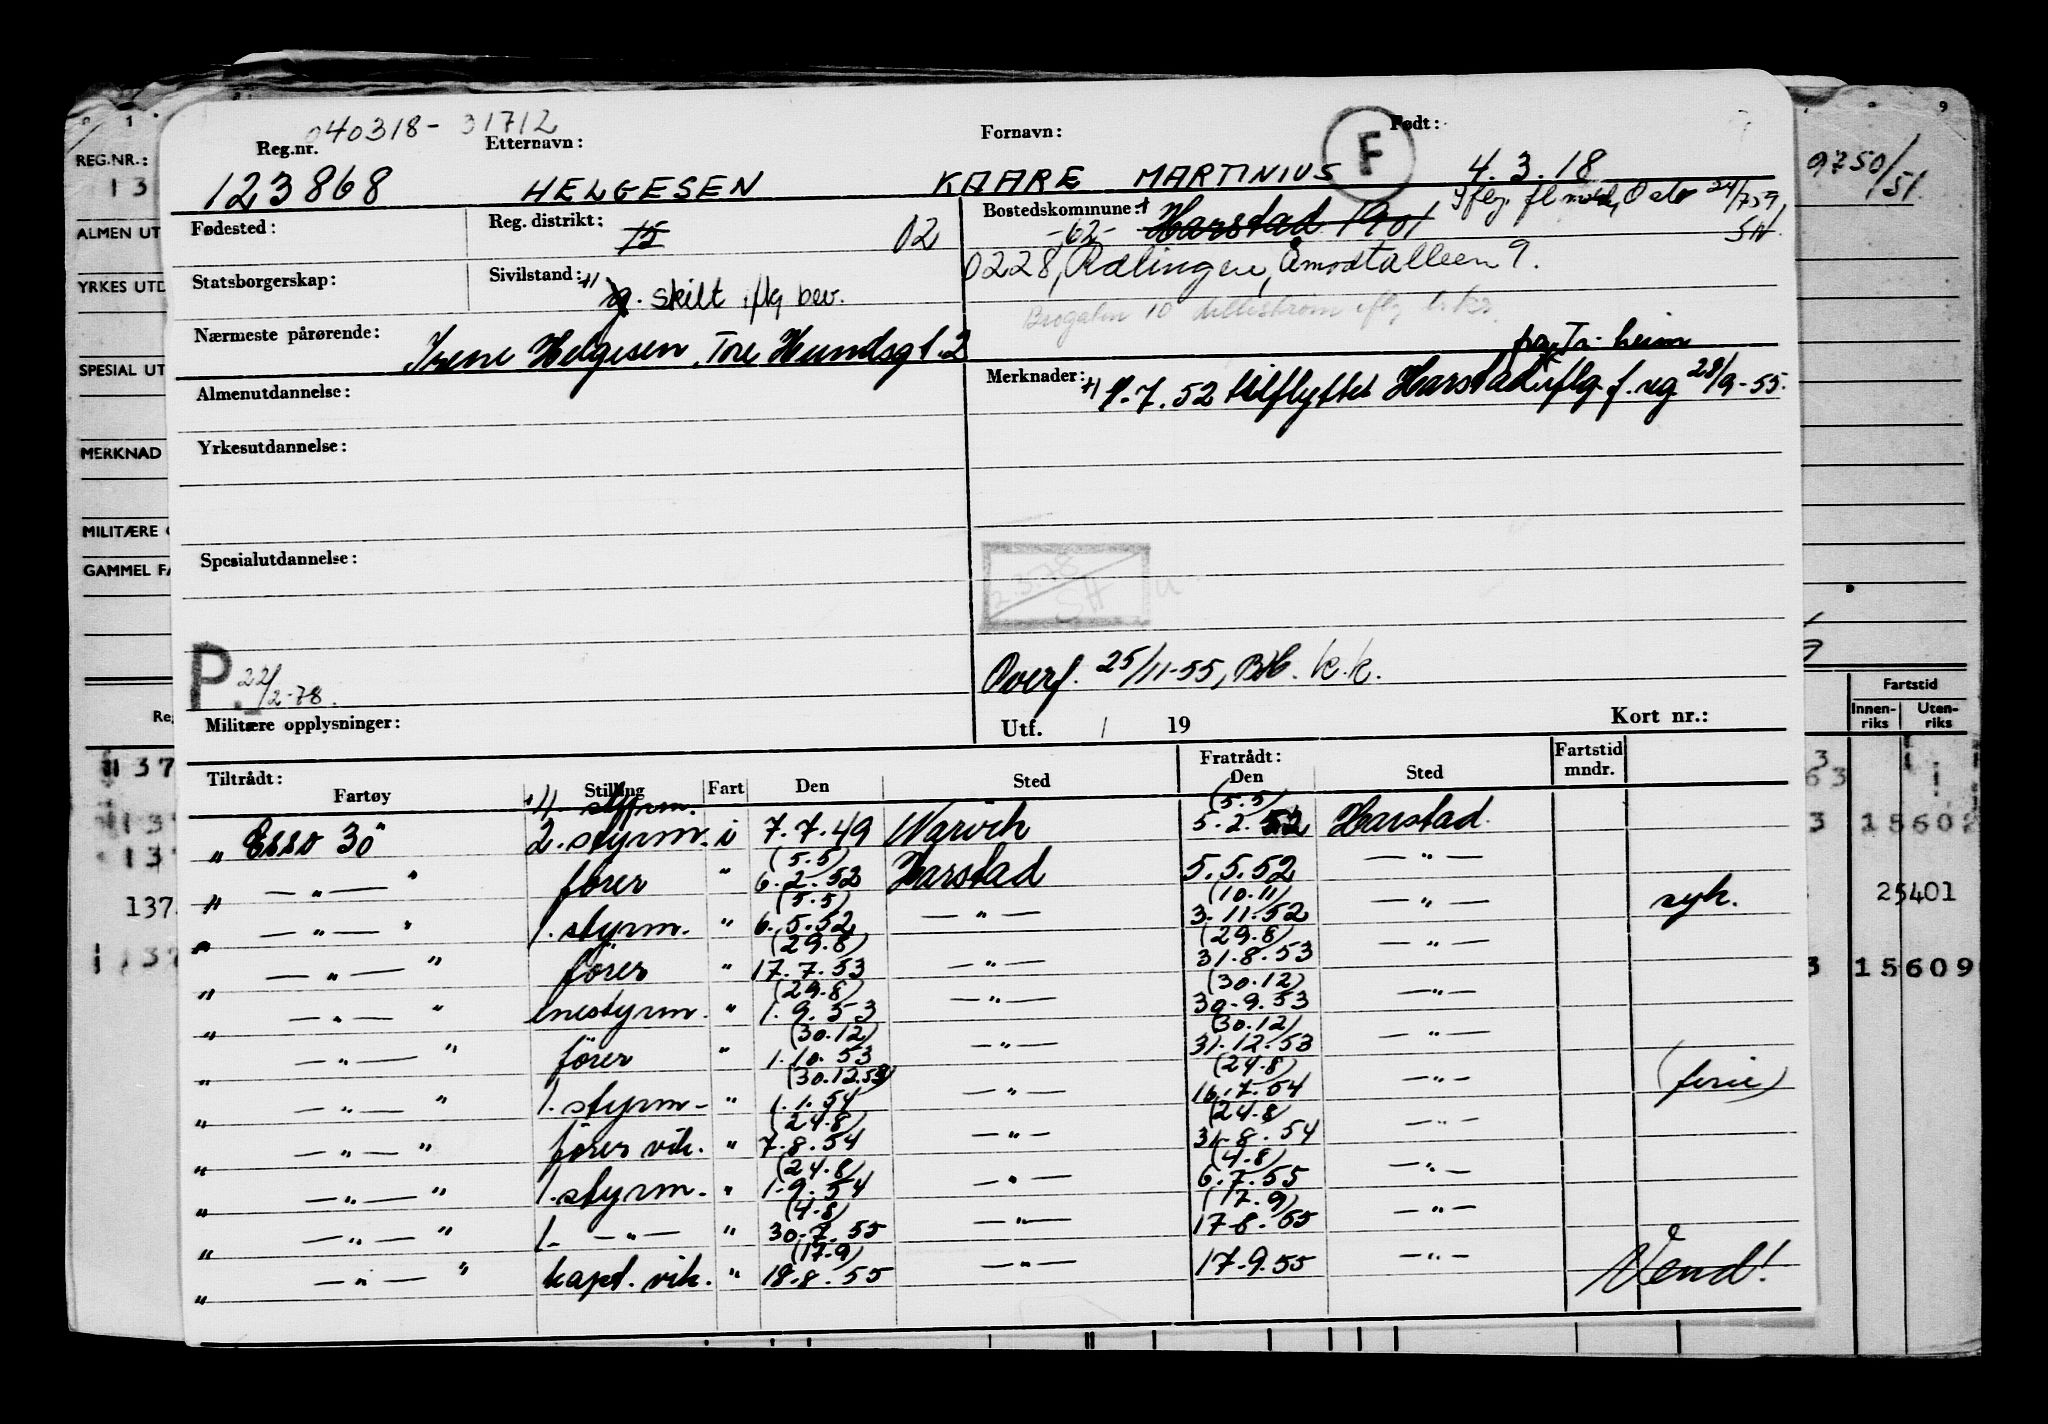 040318-31712
Reg.nr. Etternavn: Fornavn: F Født:
123868 HELGESEN KAARE MARTINIUS 4.3.18
Fødested: Reg. distrikt: 15 02 Bostedskommune: Harstad 1901
-62-
0228, Rælingen, Åmodtalleen 9.
Statsborgerskap: Sivilstand: g. skilt iflg bev.
Brogaten 10 Lillestrøm iflg
Nærmeste pårørende: Irene Helgesen, Tore Hundsgt. 2
Tr.heim
Merknader: +) 1.7.52 tilflyttet Harstad iflg f.reg 28/9-55.
Almenutdannelse:
Yrkesutdannelse:
Spesialutdannelse:
2.3.78
SH
P. 22/2-78.
Overf. 25/11-55, k.k.
Militære opplysninger: Utf. / 19 Kort nr.:
Tiltrådt: Fratrådt: Fartstid
Fartøy Stilling Fart Den Sted Den Sted mndr.
4 styrm. (5.5)
" Esso 30" 2. styrm. i 7.7.49 Narvik 5.2.52 Harstad.
(5.5)
" — " — " fører " 6.2.52 Harstad 5.5.52 — " —
(5.5) (10.11)
" — " — " 1. styrm. " 6.5.52 — " — 3.11.52 — " — syk.
(29.8) (29.8)
" — " — " fører " 17.7.53 — " — 31.8.53 — " —
(29.8) (30.12)
" — " — " enestyrm. " 1.9.53 — " — 30.9.53 — " —
(30.12) (30.12)
" — " — " fører " 1.10.53 — " — 31.12.53 — " —
(30.12.53) (24.8)
" — " — " 1. styrm. " 1.1.54 — " — 16.7.54 — " — (ferie)
(24.8) (24.8)
" — " — " fører vik. " 7.8.54 — " — 31.8.54 — " —
(24.8) (4.8)
" — " — " 1. styrm. " 1.9.54 — " — 6.7.55 — " —
(4.8) (17.9)
" — " — " 1. — " — " 30.7.55 — " — 17.8.55 — " —
(17.9)
" — " — " kapt. vik. " 18.8.55 — " — 17.9.55 — " — Vend!
REG.NR.:
13
ALMEN UT
YRKES UTD
SPESIAL UT
MERKNAD
MILITÆRE
GAMMEL FA
9750/51
9
Fartstid
Innen-riks Uten-riks
15602
25401
15609
137